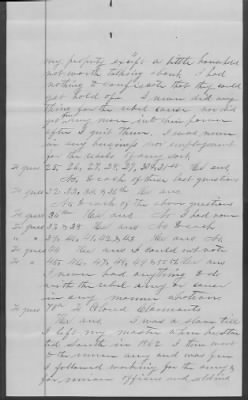 my property except a little household
not worth talking about. I had
nothing to confiscate that they could
get hold of. I never did any
thing for the rebel cause nor did
get any man into their power
after I quit them. I was never
in any business nor employment
for the rebels of any sort
To ques 25, 26, 27, 28, 29, 30, 31st He ans
No to each of these last questions
To ques 32, 33, 34 & 35th He ans
No to each of the above questions
To ques 36th He ans No I had none
To ques 37 & 38 He ans No to each
" " 39, 40, 41, 42 & 43 He ans No
To ques 44 He ans I could not vote
To " 45, 46, 47, 48, 49 & 50th He ans
I never had anything to do
with the rebel army or cause
in any manner whatever
To ques To Colored Claimants
He ans I was a slave till
I left my master when he started
South in 1862 I then went
to the union army and was free
I followed working for the army &
for union officers and soldiers